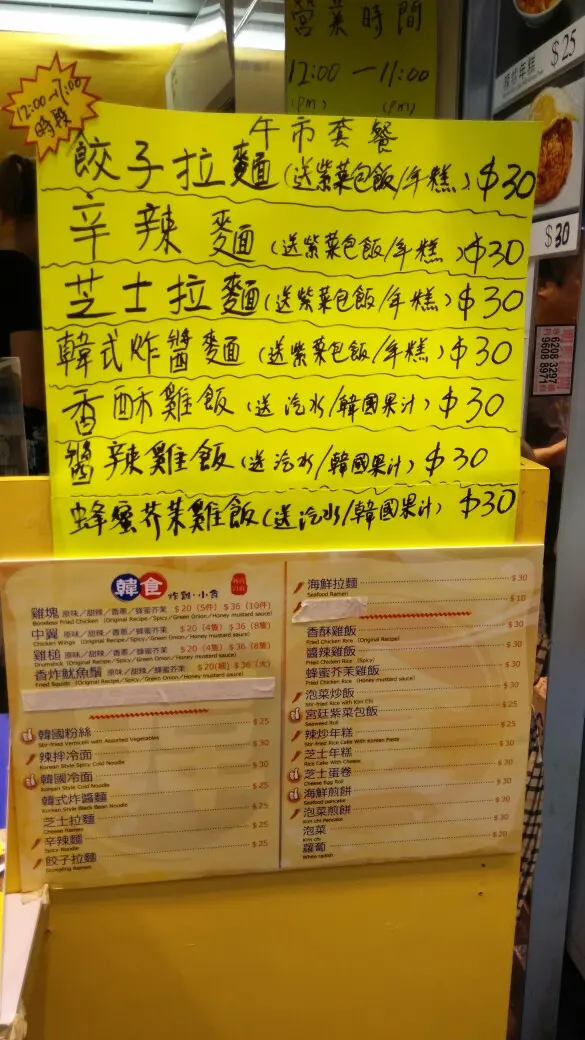 營業時間
12:00 — 11:00
(pm) (pm)
$25
$30
12:00—7:00
時段
午市套餐
餃子拉麵(送紫菜包飯/年糕)$30
辛辣麵(送紫菜包飯/年糕)$30
芝士拉麵(送紫菜包飯/年糕)$30
韓式炸醬麵(送紫菜包飯/年糕)$30
香酥雞飯(送汽水/韓國果汁)$30
醬辣雞飯(送汽水/韓國果汁)$30
蜂蜜芥茉雞飯(送汽水/韓國果汁)$30
6208 3297
9608 8971
韓食 炸雞·小食
雞塊 原味/甜辣/香蔥/蜂蜜芥茉 $20 (5件) $36 (10件)
Boneless Fried Chicken (Original Recipe/Spicy/Green Onion/Honey mustard sauce)
中翼 原味/甜辣/香蔥/蜂蜜芥茉 $20 (4隻) $36 (8隻)
Chicken Wings (Original Recipe/Spicy/Green Onion/Honey mustard sauce)
雞槌 原味/甜辣/香蔥/蜂蜜芥茉 $20 (4隻) $36 (8隻)
Drumstick (Original Recipe/Spicy/Green Onion/Honey mustard sauce)
香炸魷魚鬚 原味/甜辣/蜂蜜芥茉 $20(細) $36 (大)
Fried Squids (Original Recipe/Spicy/Green Onion/Honey mustard sauce)
韓國粉絲 $25
Stir-fried Vermicelli with Assorted Vegetables
辣拌冷面 $30
Korean Style Spicy Cold Noodle
韓國冷面 $30
Korean Style Cold Noodle
韓式炸醬麵 $25
Korean Style Black Bean Noodle
芝士拉麵 $25
Cheese Ramen
辛辣麵 $25
Spicy Noodle
餃子拉麵 $25
Dumpling Ramen
海鮮拉麵 $30
Seafood Ramen
$10
香酥雞飯 $30
Fried Chicken Rice (Original Recipe)
醬辣雞飯 $30
Fried Chicken Rice (Spicy)
蜂蜜芥茉雞飯 $30
Fried Chicken Rice (Honey mustard sauce)
泡菜炒飯 $30
Stir-fried Rice with Kim Chi
宮廷紫菜包飯 $25
Seaweed Roll
辣炒年糕 $25
Stir-fried Rice Cake With Korean Paste
芝士年糕 $30
Rice Cake With Cheese
芝士蛋卷 $30
Cheese Egg Roll
海鮮煎餅 $30
Seafood pancake
泡菜煎餅 $30
Kim chi Pancake
泡菜 $30
Kim chi
蘿蔔 $20
White radish